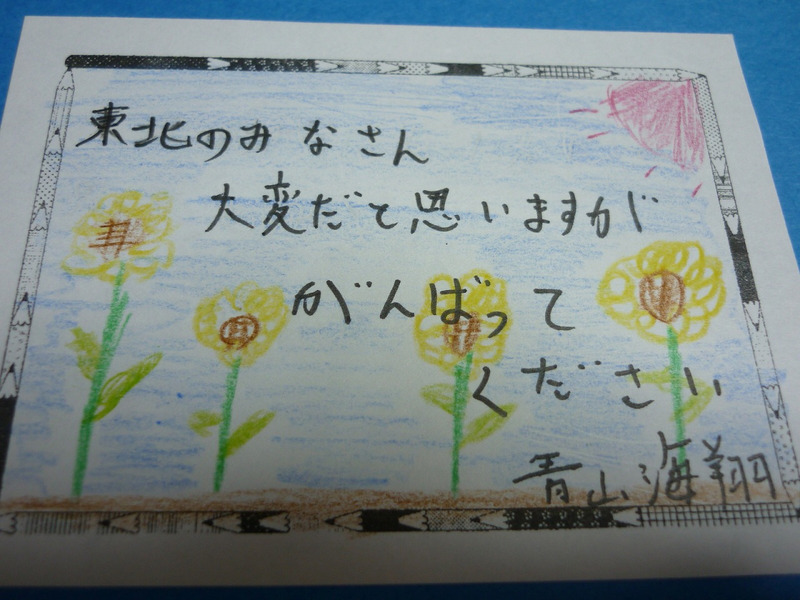 東北のみなさん
大変だと思いますが
がんばって
ください
青山海翔